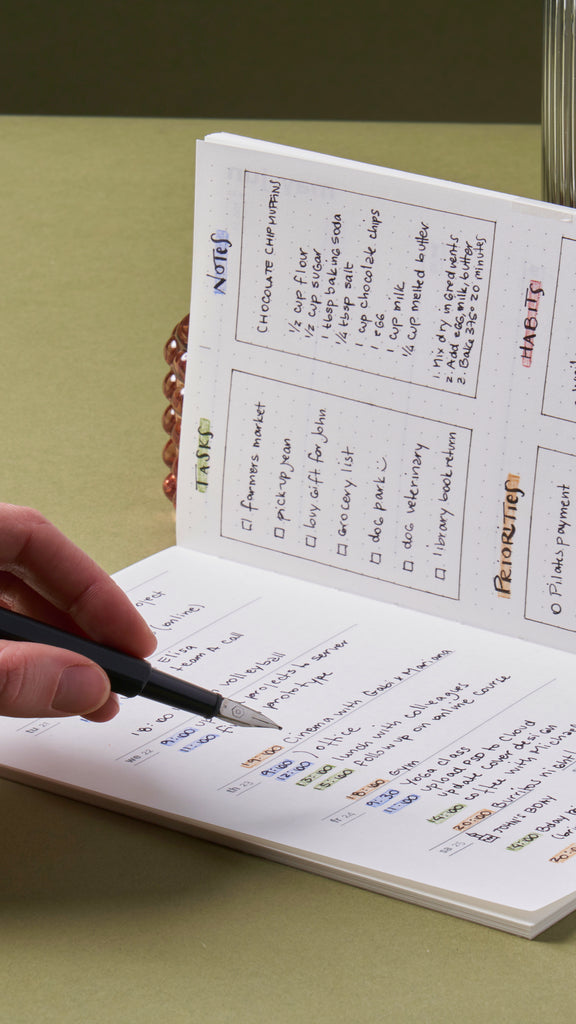 NOTES
CHOCOLATE CHIP MUFFINS
1/2 cup flour
1/2 cup sugar
1 tbsp baking soda
1/4 tbsp salt
1 cup chocolate chips
1 egg
1 cup milk
1/4 cup melted butter
1. Mix dry ingredients
2. Add egg, milk, butter
2. Bake 375° 20 minutes
TASKS
farmers market
pick-up Jean
buy gift for John
Grocery list
dog park
dog veterinary
library book return
HABITS
PRIORITIES
Pilates payment
(online)
Elisa
team A call
18:00 volleyball
9:00 projects to server
11:00 prototype
19:00 Cinema with Gabi & Mariana
9:00
12:00 office
13:00 lunch with colleagues
15:00 follow up on online course
18:00 Gym
9:30 Yoga class
11:00 upload PSD to cloud
update cover design
19:00 coffee with
20:00 Burritos night!
JOHN'S BDAY
Bday